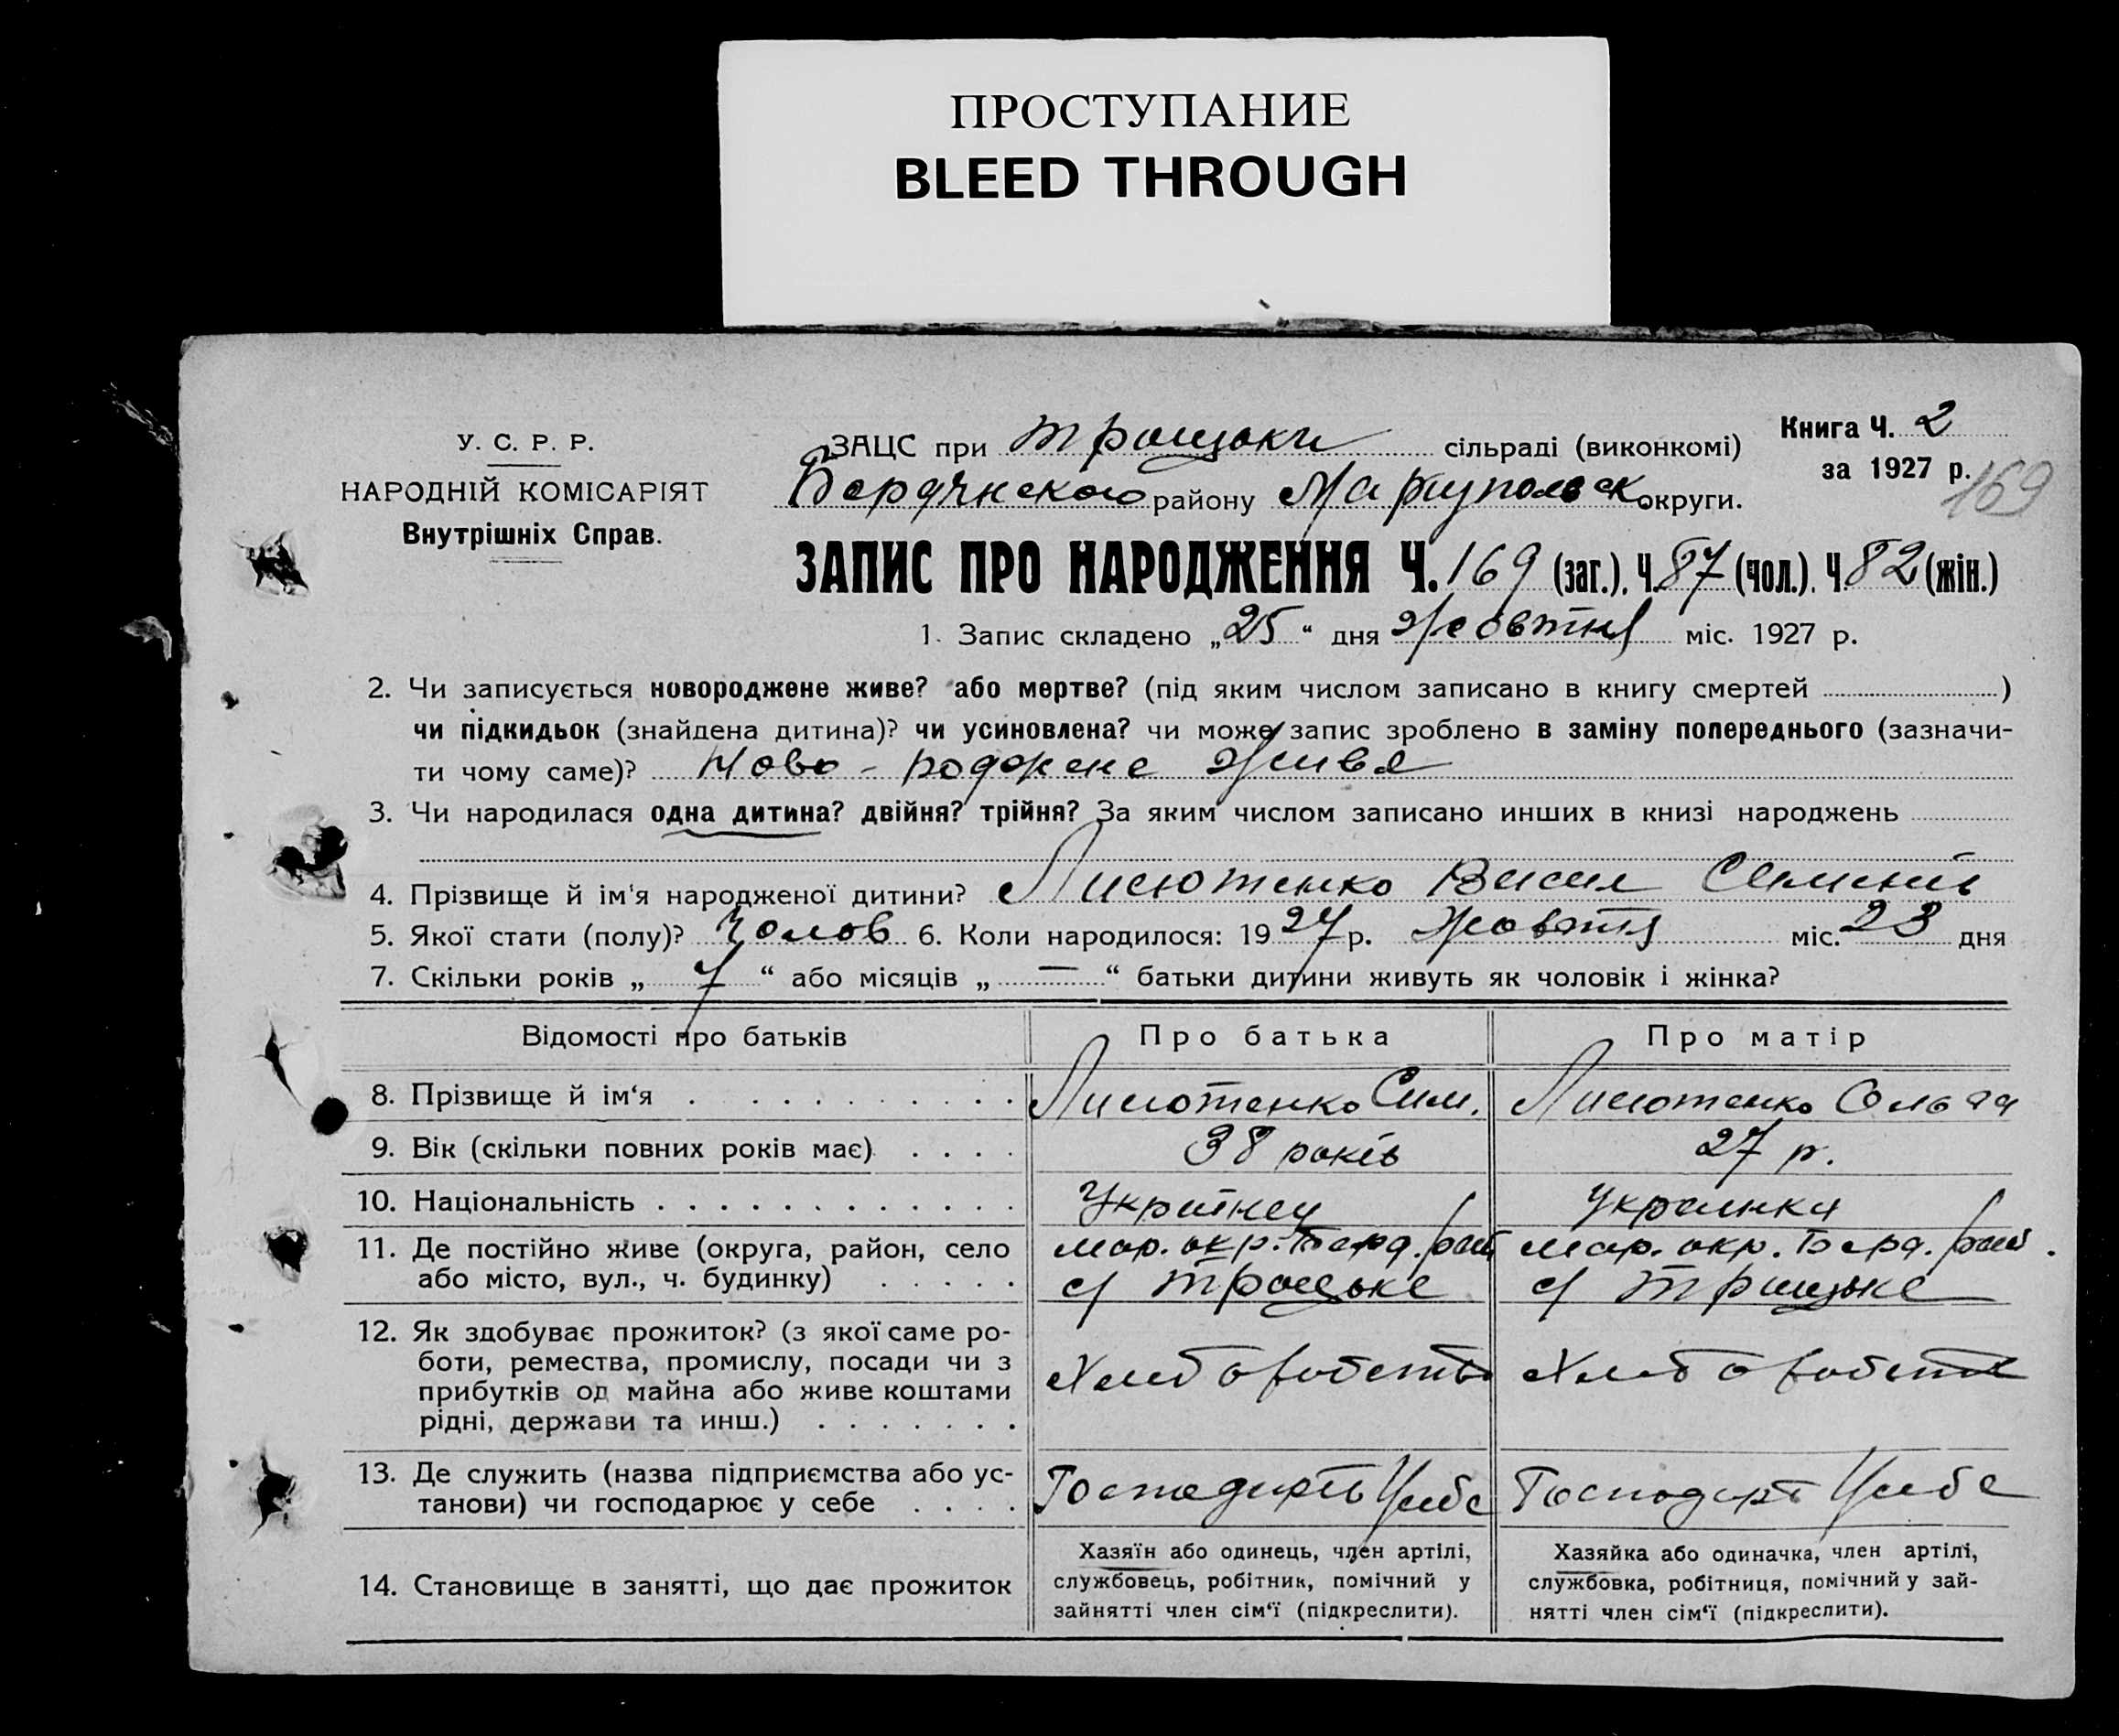 ПРОСТУПАНИЕ
BLEED THROUGH
У. С. Р. Р.
НАРОДНІЙ КОМІСАРІЯТ
Внутрішніх Справ.
ЗАЦС при Троицьки сільраді (виконкомі)
Бердянского району Маріупольск округи.
Книга Ч. 2
за 1927 р.
169
ЗАПИС ПРО НАРОДЖЕННЯ Ч. 169 (заг.), Ч. 87 (чол.), Ч. 82 (жін.)
1. Запис складено „25“ дня Жовтня міс. 1927 р.
2. Чи записується новороджене живе? або мертве? (під яким числом записано в книгу смертей )
чи підкидьок (знайдена дитина)? чи усиновлена? чи може запис зроблено в заміну попереднього (зазначи-
ти чому саме)? Ново-роджене живе
3. Чи народилася одна дитина? двійня? трійня? За яким числом записано инших в книзі народжень
4. Прізвище й ім'я народженої дитини? Лисютенко Васил Семенів
5. Якої стати (полу)? Чолов 6. Коли народилося: 1927 р. Жовтня міс. 23 дня
7. Скільки років „7“ або місяців „—“ батьки дитини живуть як чоловік і жінка?
Відомості про батьків
Про батька
Про матір
8. Прізвище й ім‘я
Лисютенко Сим.
Лисютенко Ольга
9. Вік (скільки повних років має)
38 років
27 р.
10. Національність
Українец
Украинка
11. Де постійно живе (округа, район, село
або місто, вул., ч. будинку)
мар. окр. Берд. рай
с/ Троицьке
мар. окр. Берд. рай.
с/ Троицьке
12. Як здобуває прожиток? (з якої саме ро-
боти, ремества, промислу, посади чи з
прибутків од майна або живе коштами
рідні, держави та инш.)
Хлиборобство
Хлиборобство
13. Де служить (назва підприємства або ус-
танови) чи господарює у себе
Господарь У себе
Господарь У себе
14. Становище в занятті, що дає прожиток
Хазяїн або одинець, член артілі,
службовець, робітник, помічний у
зайнятті член сім‘ї (підкреслити).
Хазяйка або одиначка, член артілі,
службовка, робітниця, помічний у зай-
нятті член сім‘ї (підкреслити).